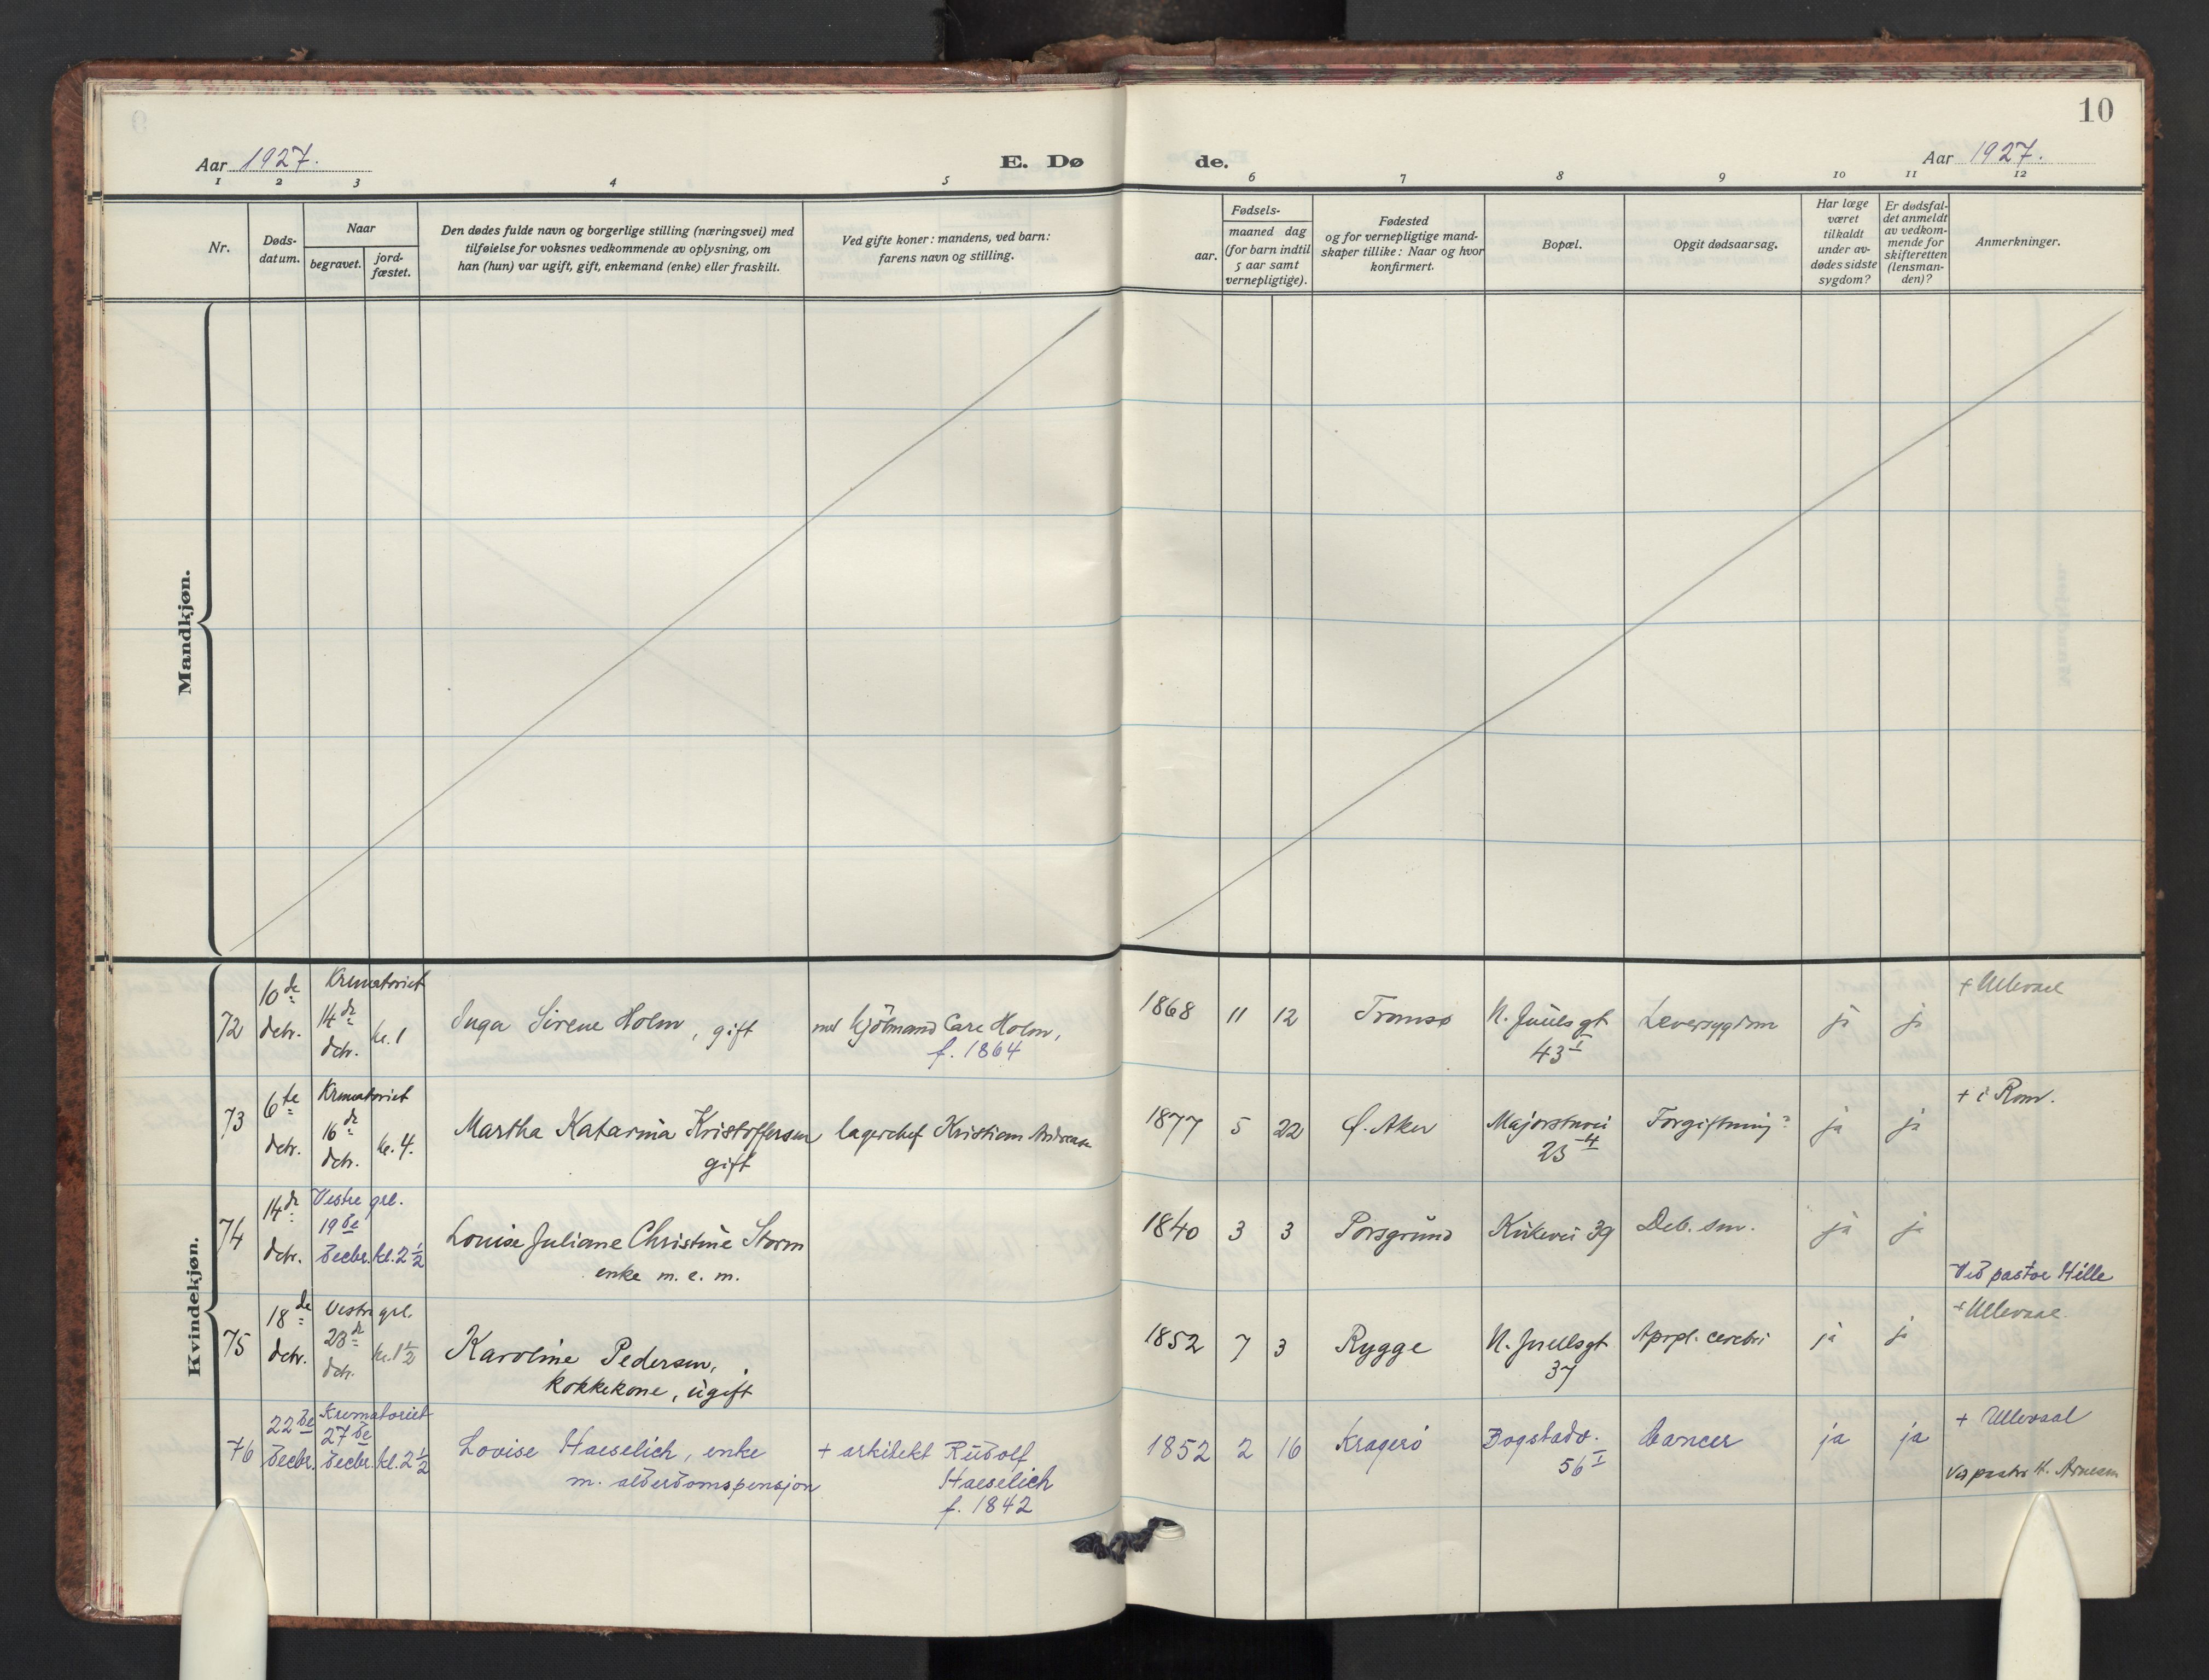 10
Aar 1927.
E. Dø
de.
Aar 1927.
1 2 3 4 5 6 7 8 9 10 11 12
Nr.
Døds-
datum.
Naar
begravet.
jord-
fæstet.
Den dødes fulde navn og borgerlige stilling (næringsvei) med
tilføielse for voksnes vedkommende av oplysning, om
han (hun) var ugift, gift, enkemand (enke) eller fraskilt.
Ved gifte koner: mandens, ved barn:
farens navn og stilling.
Fødsels-
aar.
maaned dag
(for barn indtil
5 aar samt
vernepligtige).
Fødested
og for vernepligtige mand-
skaper tillike: Naar og hvor
konfirmert.
Bopæl.
Opgit dødsaarsag.
Har læge
været
tilkaldt
under av-
dødes sidste
sygdom?
Er dødsfal-
det anmeldt
av vedkom-
mende for
skifteretten
(lensman-
den)?
Anmerkninger.
Mandkjøn.
Kvindekjøn.
72
10de
dcbr.
Krematoriet
14de
dcbr.
kl. 1
Inga Sirene Holm, gift
Carl Holm,
f. 1864
1868 11 12
Tromsø
N. Juuls gt
43 I
Leversygdom
ja
ja
+ Ullevaal
73
6te
dcbr.
Krematoriet
16de
dcbr.
kl. 4.
Martha Katarina Kristoffersen
gift
lagerchef Kristian Andreas
1877 5 22
Ø. Aker
Majorstuvei
23
Forgiftning?
ja
ja
+ i Rom.
74
14de
dcbr.
Vestre grl.
19de
decbr.
kl. 2 1/2
Louise Juliane Christine Storm
enke m. e. m.
1840 3 3
Porsgrund
Kirkevei 39
Deb. sen.
ja
ja
Ved pastor Hille
75
18de
dcbr.
Vestre grl.
23de
dcbr.
kl. 1 1/2
Karoline Pedersen,
kokkekone, ugift
1852 7 3
Rygge
N. Juellsgt
37
Apopl. cerebri
ja
ja
+ Ullevaal
76
22de
decbr.
Krematoriet
27de
decbr.
kl. 2 1/2
Lovise Haeselich, enke
m. alderdomspensjon
+ arkitekt Rudolf
Haeselich
f. 1842
1852 2 16
Kragerø
Bogstadv.
56 I
Cancer
ja
ja
+ Ullevaal
Ved pastor H. Arnesen